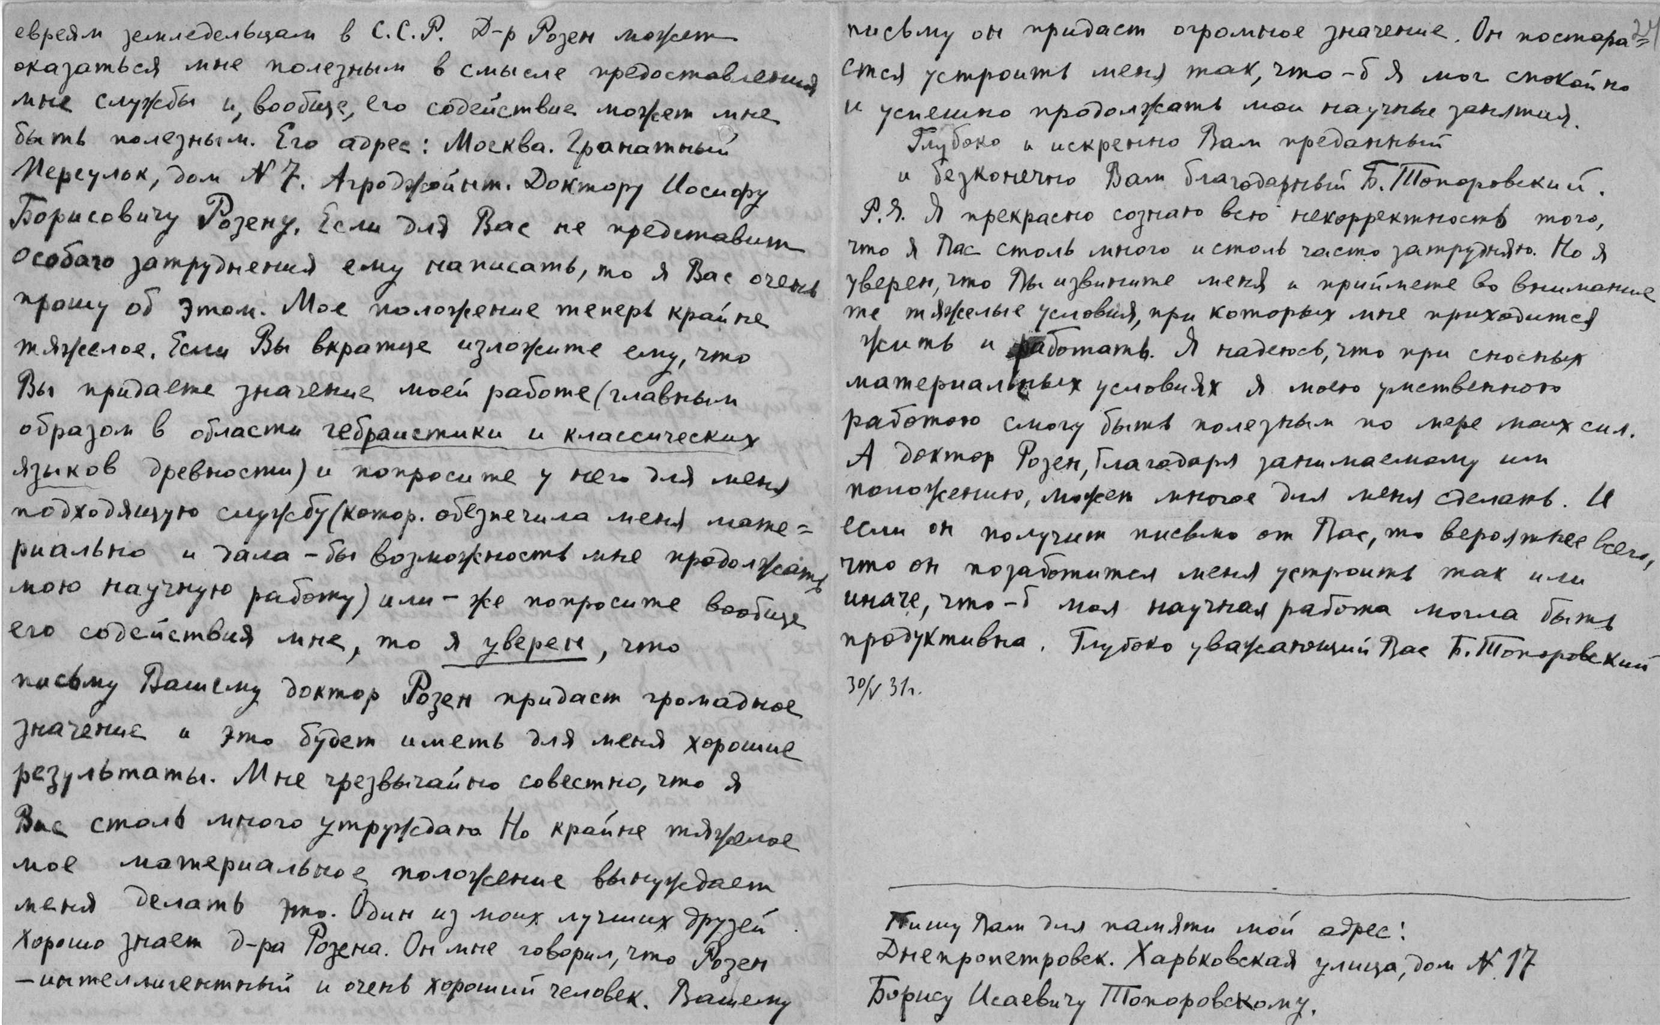 евреям земледельцам в С.С.Р. Д-р Розен может
оказаться мне полезным в смысле предоставления
мне службы и, вообще, его содействие может мне
быть полезным. Его адрес: Москва. Гранатный
Переулок, дом № 7. Агроджойнт. Доктору Иосифу
Борисовичу Розену. Если для Вас не представит
особаго затруднения ему написать, то я Вас очень
прошу об этом. Мое положение теперь крайне
тяжелое. Если Вы вкратце изложите ему, что
Вы придаете значение моей работе (главным
образом в области гебраистики и классических
языков древности) и попросите у него для меня
подходящую службу (котор. обезпечила меня мате=
риально и дала-бы возможность мне продолжать
мою научную работу) или-же попросите вообще
его содействия мне, то я уверен, что
письму Вашему доктор Розен придаст громадное
значение и это будет иметь для меня хорошие
результаты. Мне чрезвычайно совестно, что я
Вас столь много утруждаю. Но крайне тяжелое
мое материальное положение вынуждает
меня делать это. Один из моих лучших друзей
хорошо знает д-ра Розена. Он мне говорил, что Розен
-интеллигентный и очень хороший человек. Вашему
24
письму он придаст огромное значение. Он постара=
ется устроить меня так, что-б я мог спокойно
и успешно продолжать мои научные занятия.
Глубоко и искренно Вам преданный
и безконечно Вам благодарный Б. Топоровский.
P.S. Я прекрасно сознаю всю некорректность того,
что я Вас столь много и столь часто затрудняю. Но я
уверен, что Вы извините меня и приймете во внимание
те тяжелые условия, при которых мне приходится
жить и работать. Я надеюсь, что при сносных
материальных условиях я моею умственною
работою смогу быть полезным по мере моих сил.
А доктор Розен, благодаря занимаемому им
положению, может многое для меня сделать. И
если он получит письмо от Вас, то вероятнее всего,
что он позаботится меня устроить так или
иначе, что-б моя научная работа могла быть
продуктивна. Глубоко уважающий Вас Б. Топоровский
30/V 31г.
Пишу Вам для памяти мой адрес:
Днепропетровск. Харьковская улица, дом № 17
Борису Исаевичу Топоровскому.